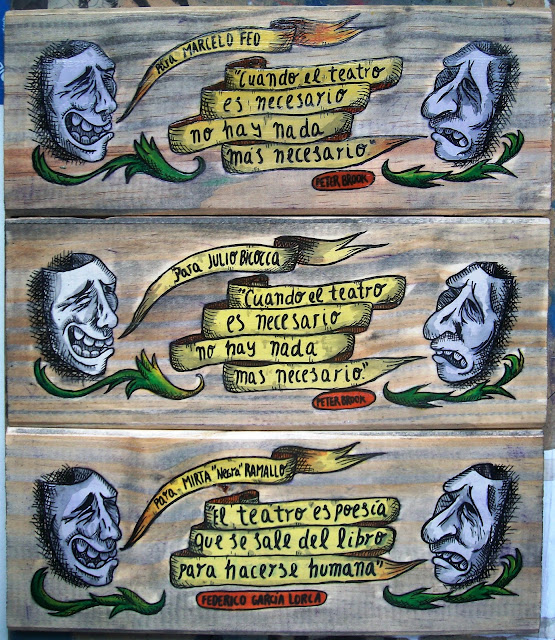 Para MARCELO FEO
"Cuando el teatro
es necesario
no hay nada
mas necesario"
PETER BROOK
Para JULIO BICOCCA
"Cuando el teatro
es necesario
"no hay nada
mas necesario."
PETER BROOK
Para. MIRTA "Negra" RAMALLO
"El teatro "es poesía"
que se sale del libro
para hacerse humana"
FEDERICO GARCÍA LORCA